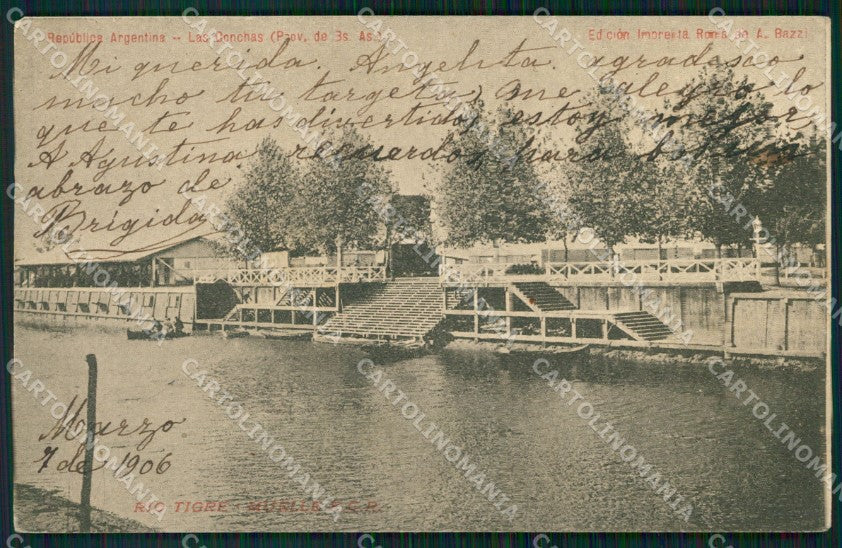 República Argentina — Las Conchas (Prov. de Bs. As.)
Edición Imprenta Roma de A. Bazzi
Mi querida. Angelita. agradesco
mucho tu targeta, me alegro lo
que te has divertido, estoy mejor
A Agustina recuerdos para
abrazo de
Brígida
Marzo
7 de 1906
RIO TIGRE - MUELLE F.C.R.
CARTOLINOMANIA